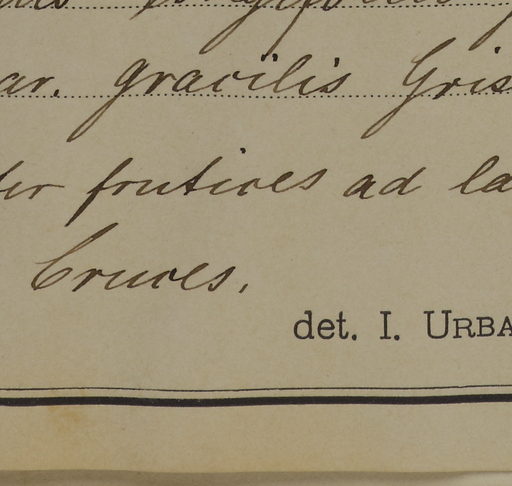 ar. gracilis Gris
ter frutices ad la
Cruces.
det. I. URBA